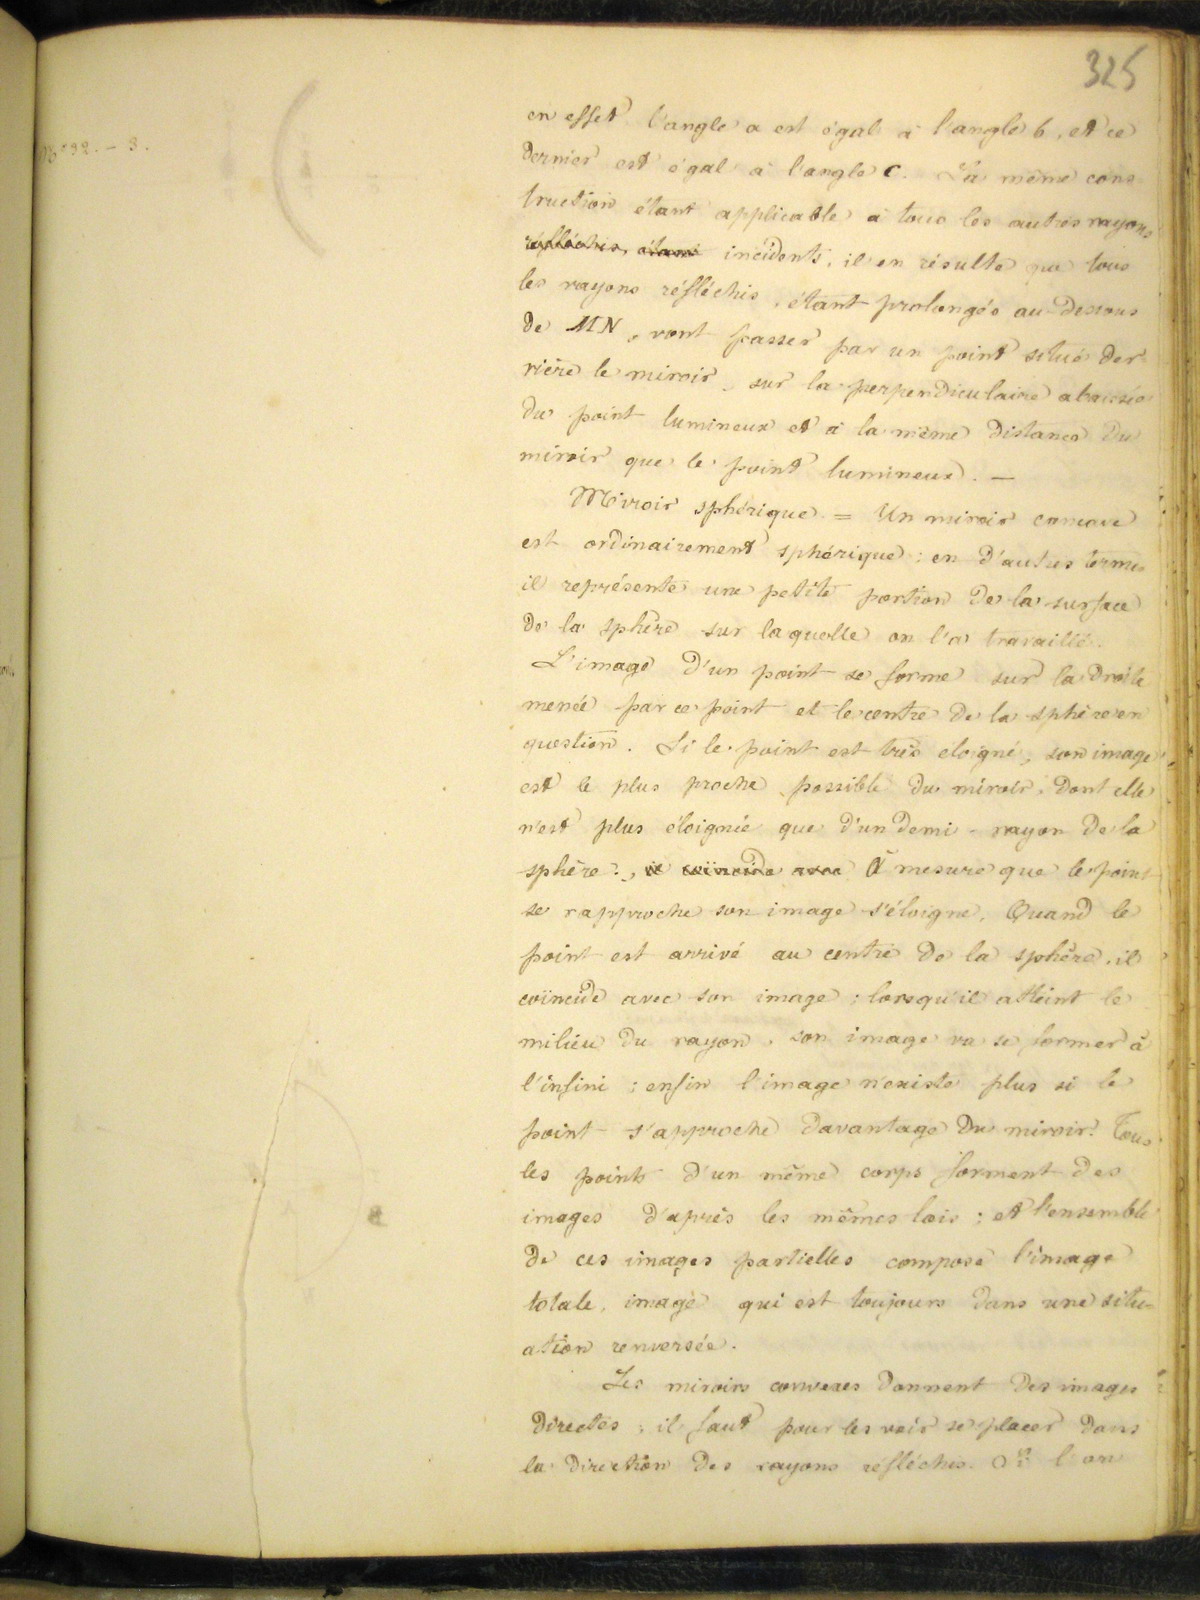 325
en effet l'angle a est égal à l'angle b, et ce
dernier est égal à l'angle c. La même cons-
truction étant applicable à tous les autres rayons
réfléchis, étant incidents, il en résulte que tous
les rayons réfléchis, étant prolongés au-dessous
de MN, vont passer par un point situé der-
rière le miroir, sur la perpendiculaire abaissée
du point lumineux et à la même distance du
miroir que le point lumineux. —
Miroir sphérique = Un miroir concave
est ordinairement sphérique : en d'autres termes
il représente une petite portion de la surface
de la sphère sur laquelle on l'a travaillé.
L'image d'un point se forme sur la droite
menée par ce point et le centre de la sphère en
question. Si le point est très éloigné, son image
est le plus proche possible du miroir, dont elle
n'est plus éloignée que d'un demi-rayon de la
sphère., il coïncide avec À mesure que le point
se rapproche son image s'éloigne. Quand le
point est arrivé au centre de la sphère, il
coïncide avec son image ; lorsqu'il atteint le
milieu du rayon, son image va se former à
l'infini ; enfin l'image n'existe plus si le
point s'approche davantage du miroir. Tous
les points d'un même corps forment des
images d'après les mêmes lois ; et l'ensemble
de ces images partielles compose l'image
totale, image qui est toujours dans une situ-
ation renversée.
Les miroirs convexes donnent des images
directes ; il faut pour les voir se placer dans
la direction des rayons réfléchis. Si l'on